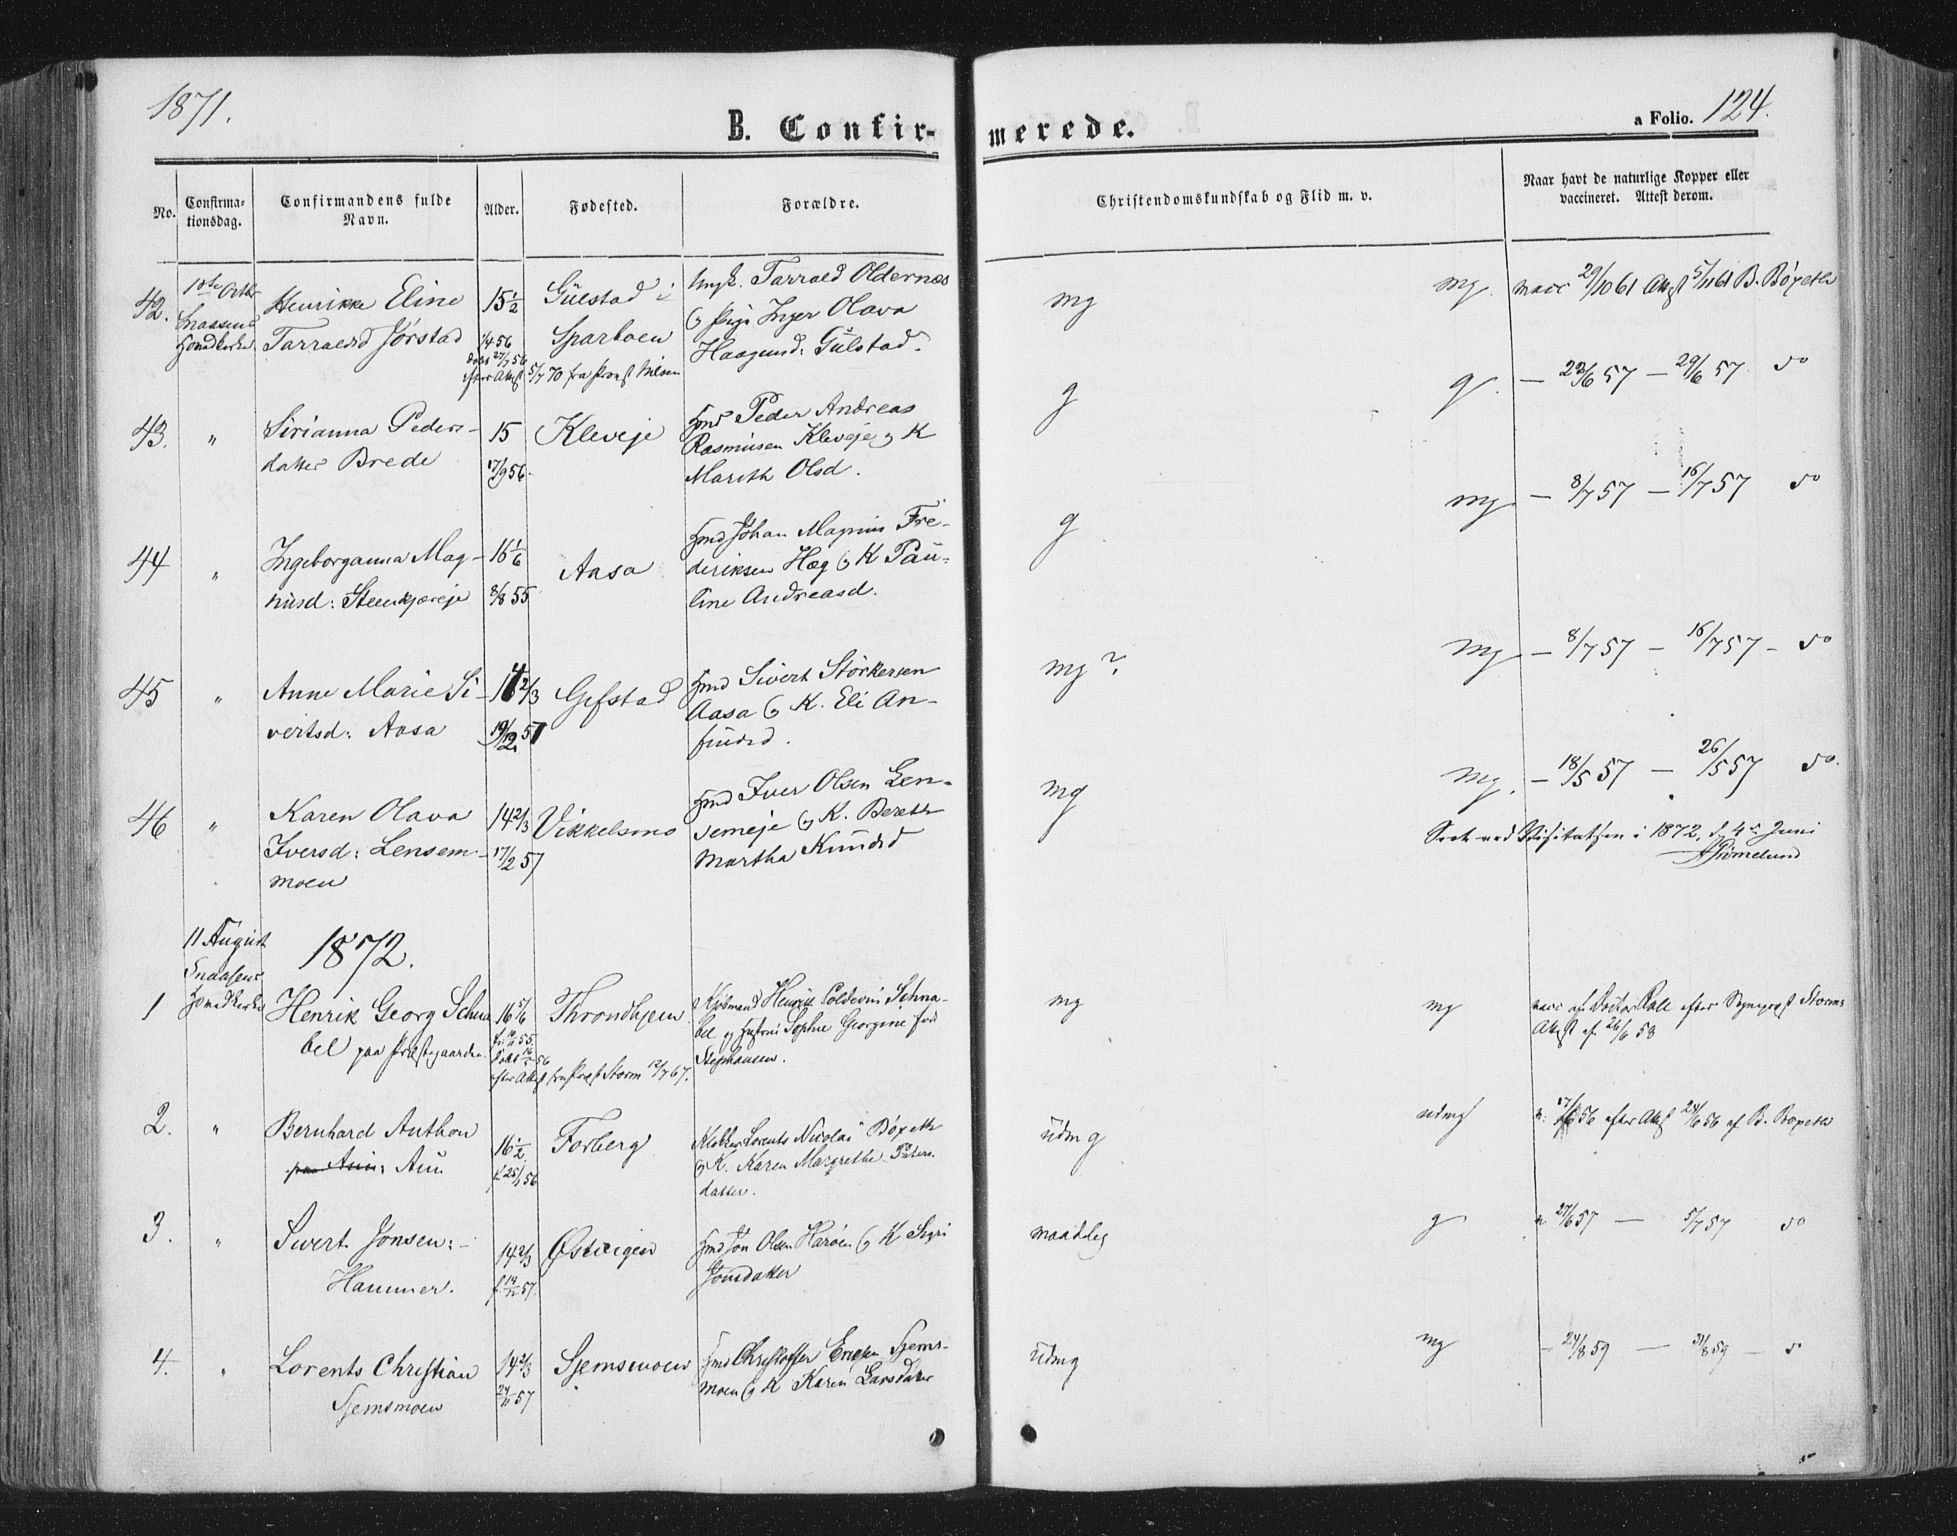 1871.
B. Confir-
merede.
a Folio. 124.
No.
Confirma-
tionsdag.
Confirmandens fulde
Navn.
Alder.
Fødested.
Forældre.
Christendomskundskab og Flid m. v.
Naar havt de naturlige Kopper eller
vaccineret. Attest derom.
42.
Snaasens
Hovedkirke
Henrikke Eline
Tarraldsd Jørstad
15 1/2
Gülstad i
Sparboen
5/7 70 fra Provst
Ungk. Tarrald Oldernæs
og Pige Inger Olava
Haagensd: Gülstad.
mg
mg.
vacc 29/10 61 Attest 5/11 61 B. Bøpeth
43.
"
Sirianna Peders-
datter Brede
15
17/9 56
Kleveje
Hmd Peder Andreas
Rasmüsen Kleveje og K
Marith Olsd.
g
g.
— 22/6 57 — 29/6 57 do
44
"
Ingeborganna Mag-
nusd: Steenkjæreje
16 1/6
8/8 55
Aasa
Hmd Johan Magnus Fre-
deriksen Hæg og K Pau-
line Andreasd.
g
mg
— 8/7 57 — 16/7 57 do
45
"
Anne Marie Si-
vertsd: Aasa
14 2/3
19/12 57
Gifstad
Hmd Sivert Storkersen
Aasa og K. Eli An-
findsd.
mg?
mg
— 8/7 57 — 16/7 57 — do
46
"
Karen Olava
Iversd: Lensem-
moen
14 2/3
17/2 57
Vikkelsmo
Hmd Iver Olsen Len-
semeje og K. Bereth
Martha Knudsd
mg
mg.
— 18/5 57 — 26/5 57 do.
Seet ved Visitatsen i 1872, d. 4de Juni
11 August
Snaasens
Hovedkirke
1872.
1
Henrik Georg Schna
bel paa Præstegaarden
16 5/6
Throndhjem
fra Præst Storm 12/7 67.
Kjøbmand Henrik Coldevin Schna-
bel og Hustru Sophie Georgine fød
Stephansen.
mg
mg
vacc af Doctor efter Sognepræst Storms
Attest af 26/6 58
2.
"
Bernhard Anthon
Aün
16 1/2
f. 25/1 56
Forberg
Klokker Lorents Nicolai Bøpeth
og K. Karen Margrethe Peters-
datter.
üdmg
udmg
v: 17/6 56 efter Attest 24/6 56 af B. Bøpeth
3.
"
Sivert Jonsen:-
Hammer.
14 2/3
Østvigen
Hmd Jon Olsen Harøen og K Sigri
Jonsdatter
maadelig
g
v 27/6 57 — 5/7 57 do
4.
"
Lorents Christian
Sjemsmoen
14 2/3
24/11 57
Sjemsmoen
Hmd Christoffer Ericksen Sjems-
moen og K Karen Larsdatter
üdmg
mg
— 24/8 59 — 31/8 59 — do